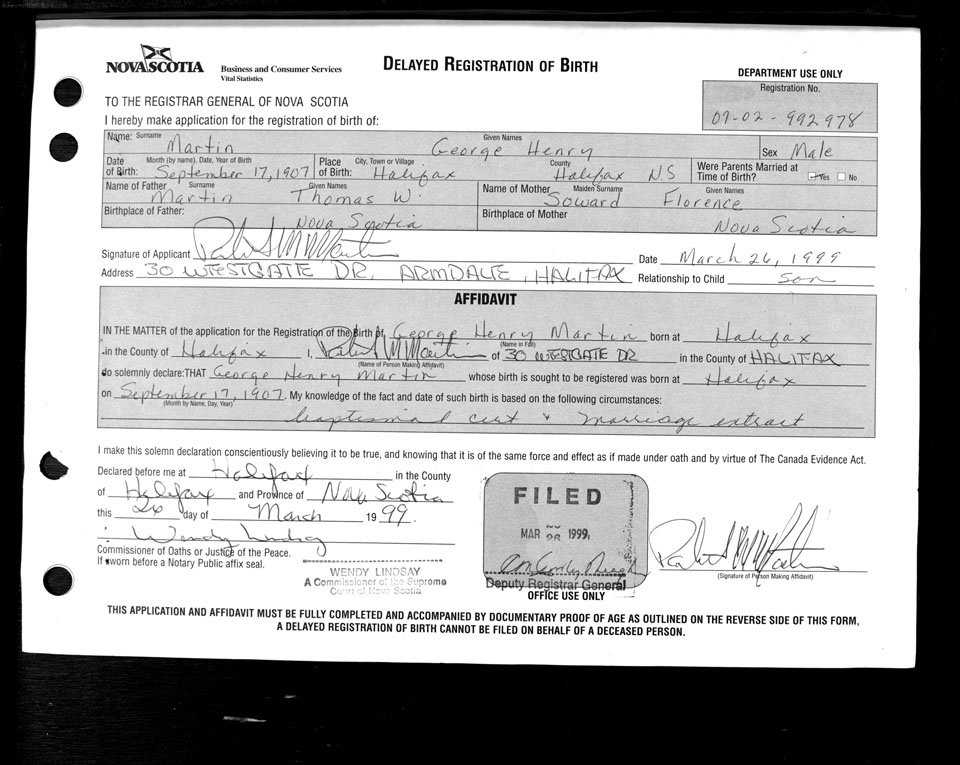 NOVA SCOTIA
Business and Consumer Services
Vital Statistics
DELAYED REGISTRATION OF BIRTH
DEPARTMENT USE ONLY
Registration No.
07-02-992978
TO THE REGISTRAR GENERAL OF NOVA SCOTIA
I hereby make application for the registration of birth of:
Name: Surname Martin Given Names George Henry Sex Male
Date of Birth: Month (by name), Date, Year of Birth September 17, 1907 Place of Birth: City, Town or Village Halifax County Halifax NS Were Parents Married at Time of Birth? Yes No
Name of Father Surname Martin Given Names Thomas W. Name of Mother Maiden Surname Soward Given Names Florence
Birthplace of Father: Nova Scotia Birthplace of Mother Nova Scotia
Signature of Applicant Date March 26, 1999
Address 30 WESTGATE DR, ARMDALE, HALIFAX Relationship to Child son
AFFIDAVIT
IN THE MATTER of the application for the Registration of the Birth of, George Henry Martin born at Halifax
(Name in Full)
in the County of Halifax I, of 30 WESTGATE DR in the County of HALIFAX
(Name of Person Making Affidavit)
do solemnly declare: THAT George Henry Martin whose birth is sought to be registered was born at Halifax
on September 17, 1907. My knowledge of the fact and date of such birth is based on the following circumstances:
(Month by Name, Day, Year)
baptismal cert & marriage extract
I make this solemn declaration conscientiously believing it to be true, and knowing that it is of the same force and effect as if made under oath and by virtue of The Canada Evidence Act.
Declared before me at Halifax in the County
of Halifax and Province of Nova Scotia
this 26 day of March 1999.
Wendy Lindsay
Commissioner of Oaths or Justice of the Peace.
If sworn before a Notary Public affix seal.
WENDY LINDSAY
A Commissioner of the Supreme
Court of Nova Scotia
FILED
MAR 26 1999
Deputy Registrar General
OFFICE USE ONLY
(Signature of Person Making Affidavit)
THIS APPLICATION AND AFFIDAVIT MUST BE FULLY COMPLETED AND ACCOMPANIED BY DOCUMENTARY PROOF OF AGE AS OUTLINED ON THE REVERSE SIDE OF THIS FORM,
A DELAYED REGISTRATION OF BIRTH CANNOT BE FILED ON BEHALF OF A DECEASED PERSON.